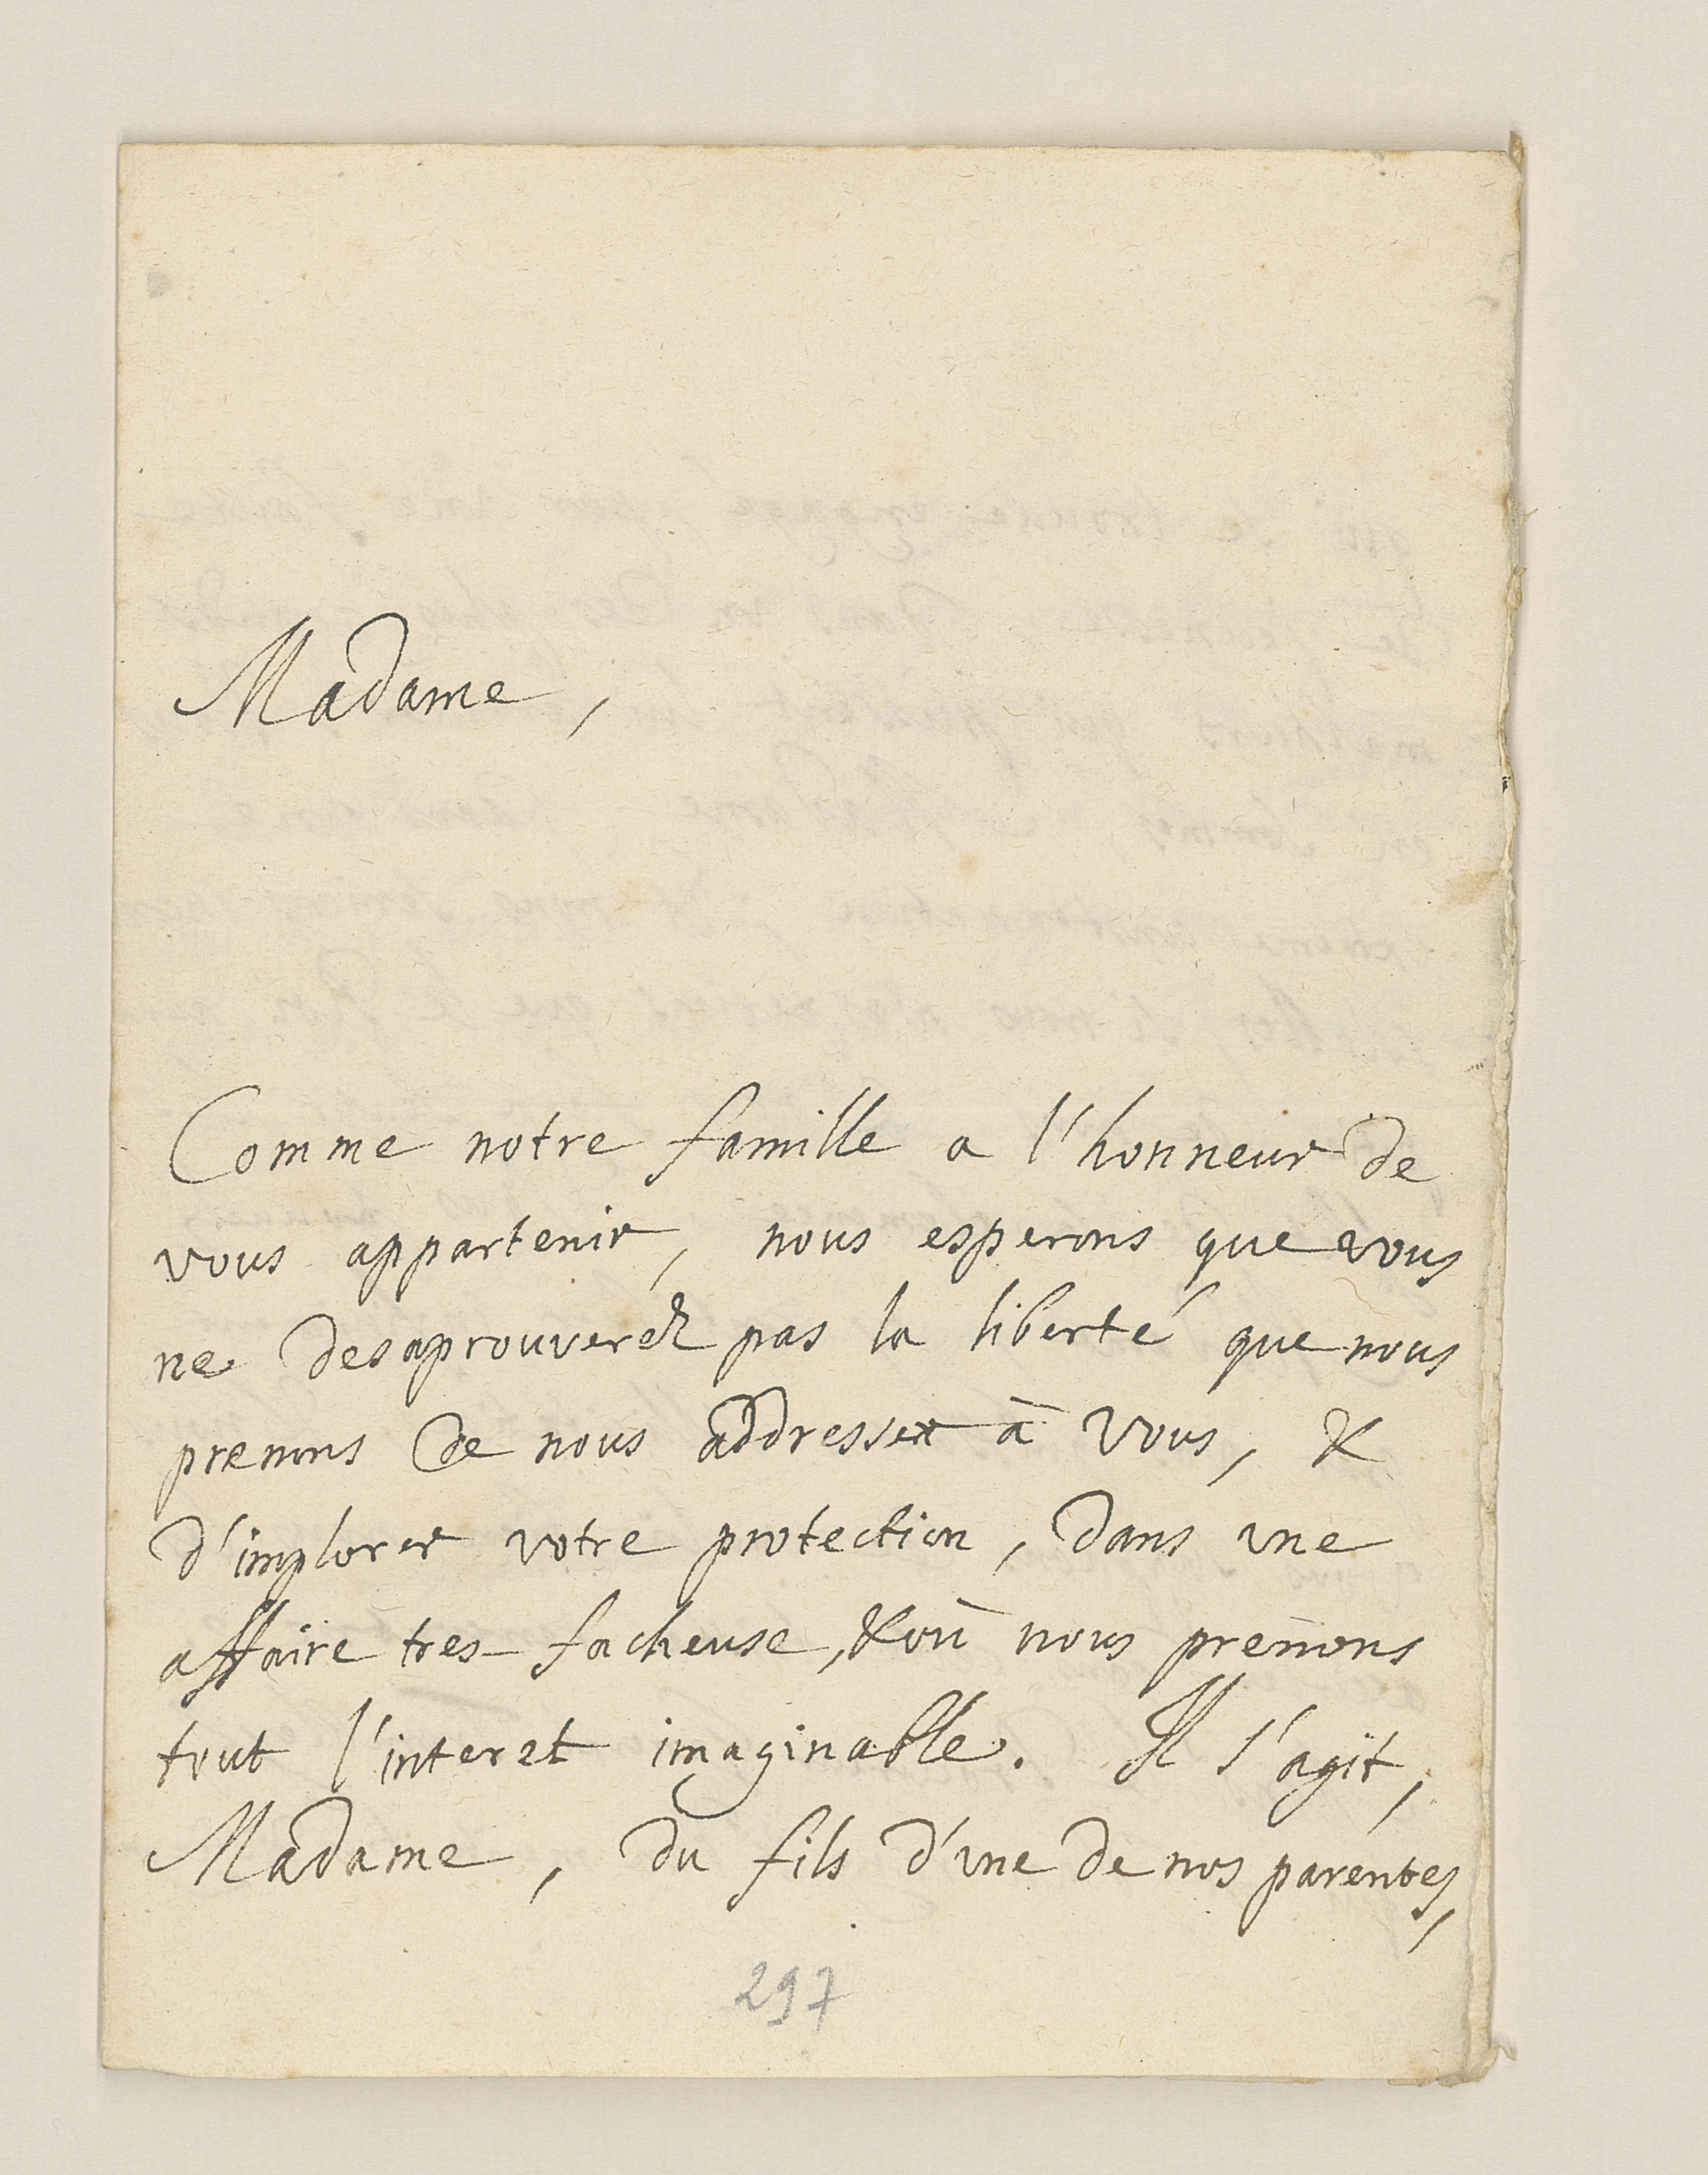 Madame,
Comme notre famille a l'honneur de
vous appartenir, nous esperons que vous
ne desaprouverez pas la liberté que nous
prenons de nous addresser à vous, &
d'implorer votre protection, dans une
affaire tres-facheuse, & où nous prenons
tout l'interet imaginable. Il s'agit,
Madame, du fils d'une de nos parentes,
297